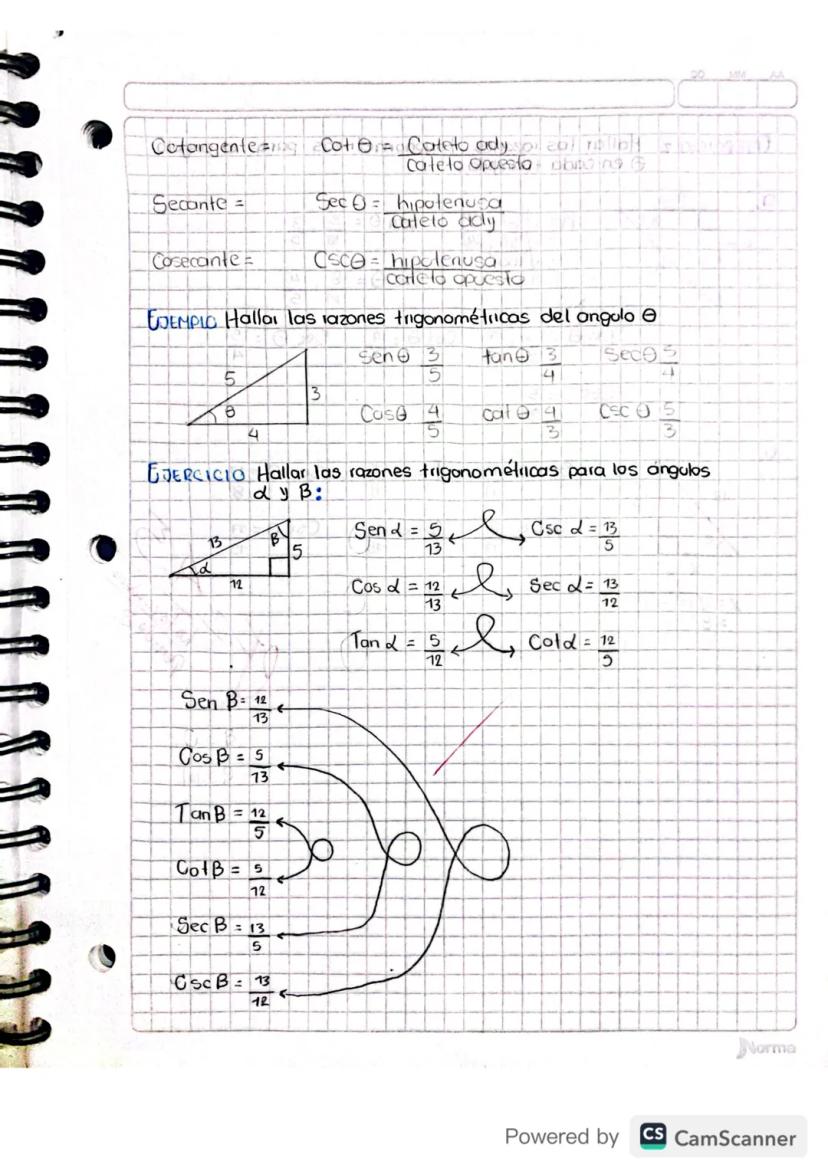 DD MM AA
Cotangente = Cot θ = Cateto ady
Cateto opuesto
Secante = Sec θ = hipotenusa
cateto ady
Cosecante = Csc θ = hipotenusa
cateto opuesto
EJEMPLO Hallar las razones trigonométricas del ángulo θ
5
θ
3
4
sen θ 3/5 tan θ 3/4 Sec θ 5/4
Cos θ 4/5 cot θ 4/3 Csc θ 5/3
EJERCICIO Hallar las razones trigonométricas para los ángulos
α y β:
13
β
5
α
12
Sen α = 5/13 Csc α = 13/5
Cos α = 12/13 Sec α = 13/12
Tan α = 5/12 Cot α = 12/5
Sen β = 12/13
Cos β = 5/13
Tan β = 12/5
Cot β = 5/12
Sec β = 13/5
Csc β = 13/12
Norma
Powered by CS CamScanner